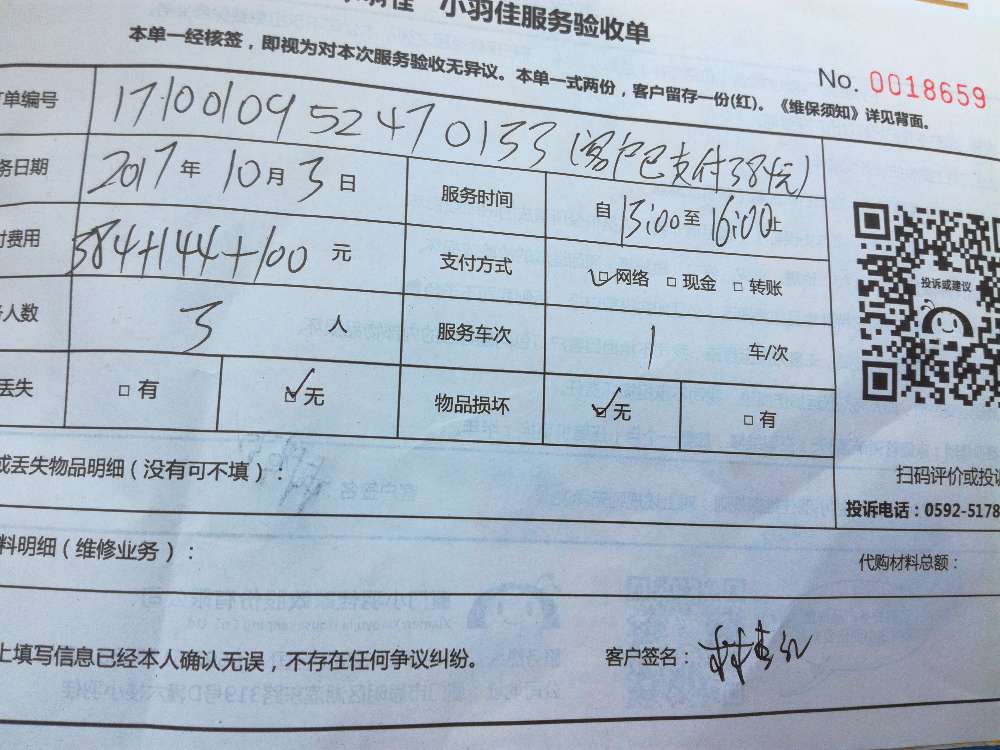 小羽佳服务验收单
本单一经核签，即视为对本次服务验收无异议。本单一式两份，客户留存一份(红)。《维保须知》详见背面。
No. 0018659
单编号 1710010952470133 (客户已支付384元)
务日期 2017 年 10 月 3 日 服务时间 自 13:00 至 16:00 止
费用 384+144+100 元 支付方式 网络 现金 转账
人数 3 人 服务车次 1 车/次
丢失 有 无 物品损坏 无 有
投诉或建议
或丢失物品明细（没有可不填）：
扫码评价或投诉
投诉电话：0592-5178
料明细（维修业务）：
代购材料总额：
上填写信息已经本人确认无误，不存在任何争议纠纷。
客户签名：